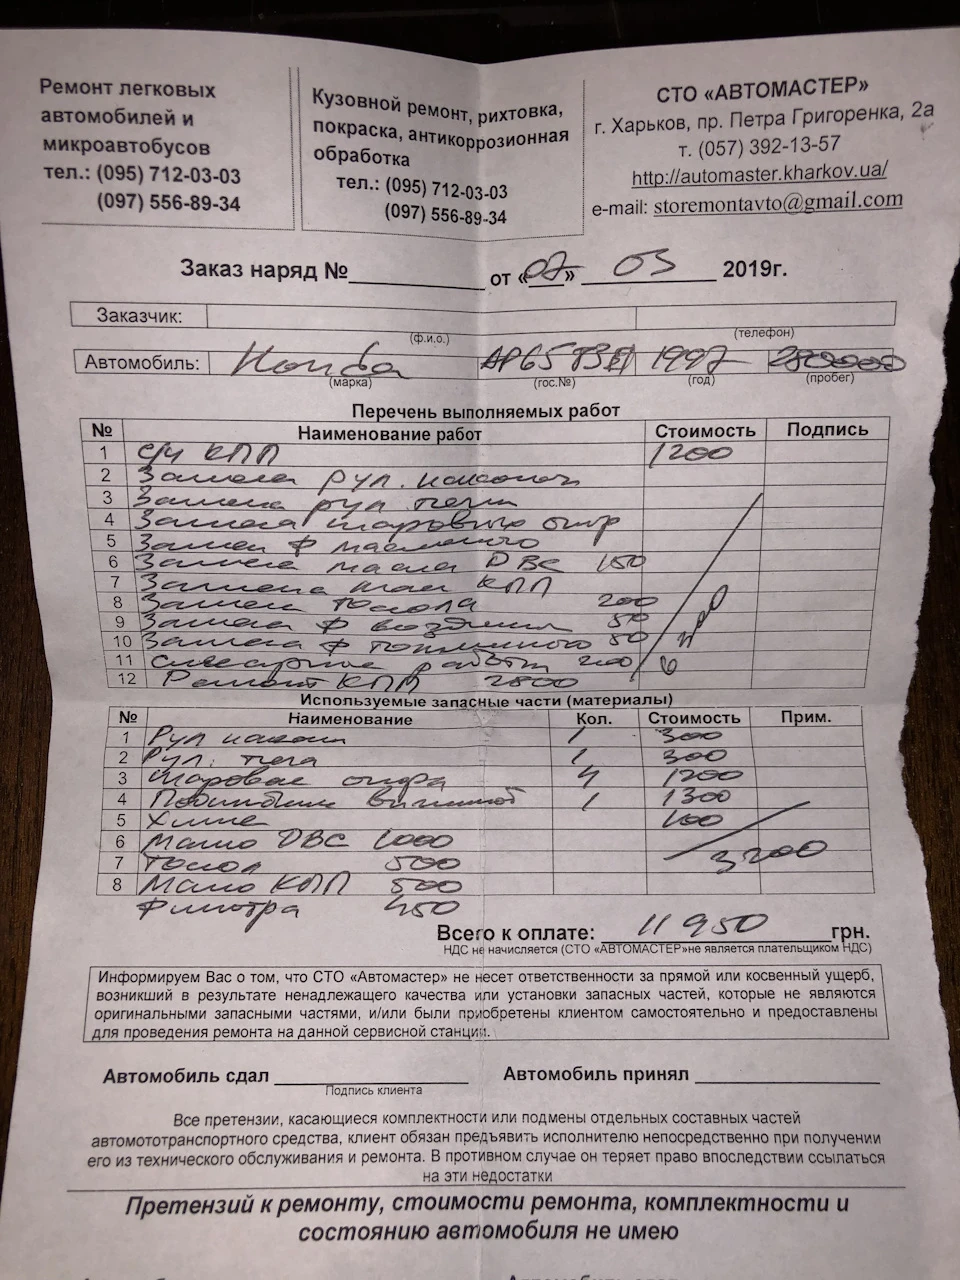 Ремонт легковых
автомобилей и
микроавтобусов
тел.: (095) 712-03-03
(097) 556-89-34
Кузовной ремонт, рихтовка,
покраска, антикоррозионная
обработка
тел.: (095) 712-03-03
(097) 556-89-34
СТО «АВТОМАСТЕР»
г. Харьков, пр. Петра Григоренка, 2а
т. (057) 392-13-57
http://automaster.kharkov.ua/
e-mail: storemontavto@gmail.com
Заказ наряд №__________ от «07» 03 2019г.
Заказчик:
(ф.и.о.) (телефон)
Автомобиль: Honda 1997
(марка) (гос.№) (год) (пробег)
Перечень выполняемых работ
№ Наименование работ Стоимость Подпись
1 с/у КПП 1200
2 Замена рул. наконеч
3 Замена рул тяги
4 Замена шаровых опор
5 Замен ф масляного
6 Замена масла ДВС 150
7 Замена мас КПП
8 Замен тосола 200
9 Замена ф воздушн 50
10 Замена ф топливного 50
11 слесарные работы 200
12 Ремонт КПП 2800
Используемые запасные части (материалы)
№ Наименование Кол. Стоимость Прим.
1 Рул након 1 300
2 Рул. тяга 1 300
3 Шаровая опора 4 1200
4 Подшибник 1 1300
5 Химия 100
6 Масло ДВС 1000
7 Тосол 500 3200
8 Масло КПП 500
Филтра 450
Всего к оплате: 11950 грн.
НДС не начисляется (СТО «АВТОМАСТЕР»не является плательщиком НДС)
Информируем Вас о том, что СТО «Автомастер» не несет ответственности за прямой или косвенный ущерб,
возникший в результате ненадлежащего качества или установки запасных частей, которые не являются
оригинальными запасными частями, и/или были приобретены клиентом самостоятельно и предоставлены
для проведения ремонта на данной сервисной станции.
Автомобиль сдал __________ Автомобиль принял __________
Подпись клиента
Все претензии, касающиеся комплектности или подмены отдельных составных частей
автомототранспортного средства, клиент обязан предъявить исполнителю непосредственно при получении
его из технического обслуживания и ремонта. В противном случае он теряет право впоследствии ссылаться
на эти недостатки
Претензий к ремонту, стоимости ремонта, комплектности и
состоянию автомобиля не имею